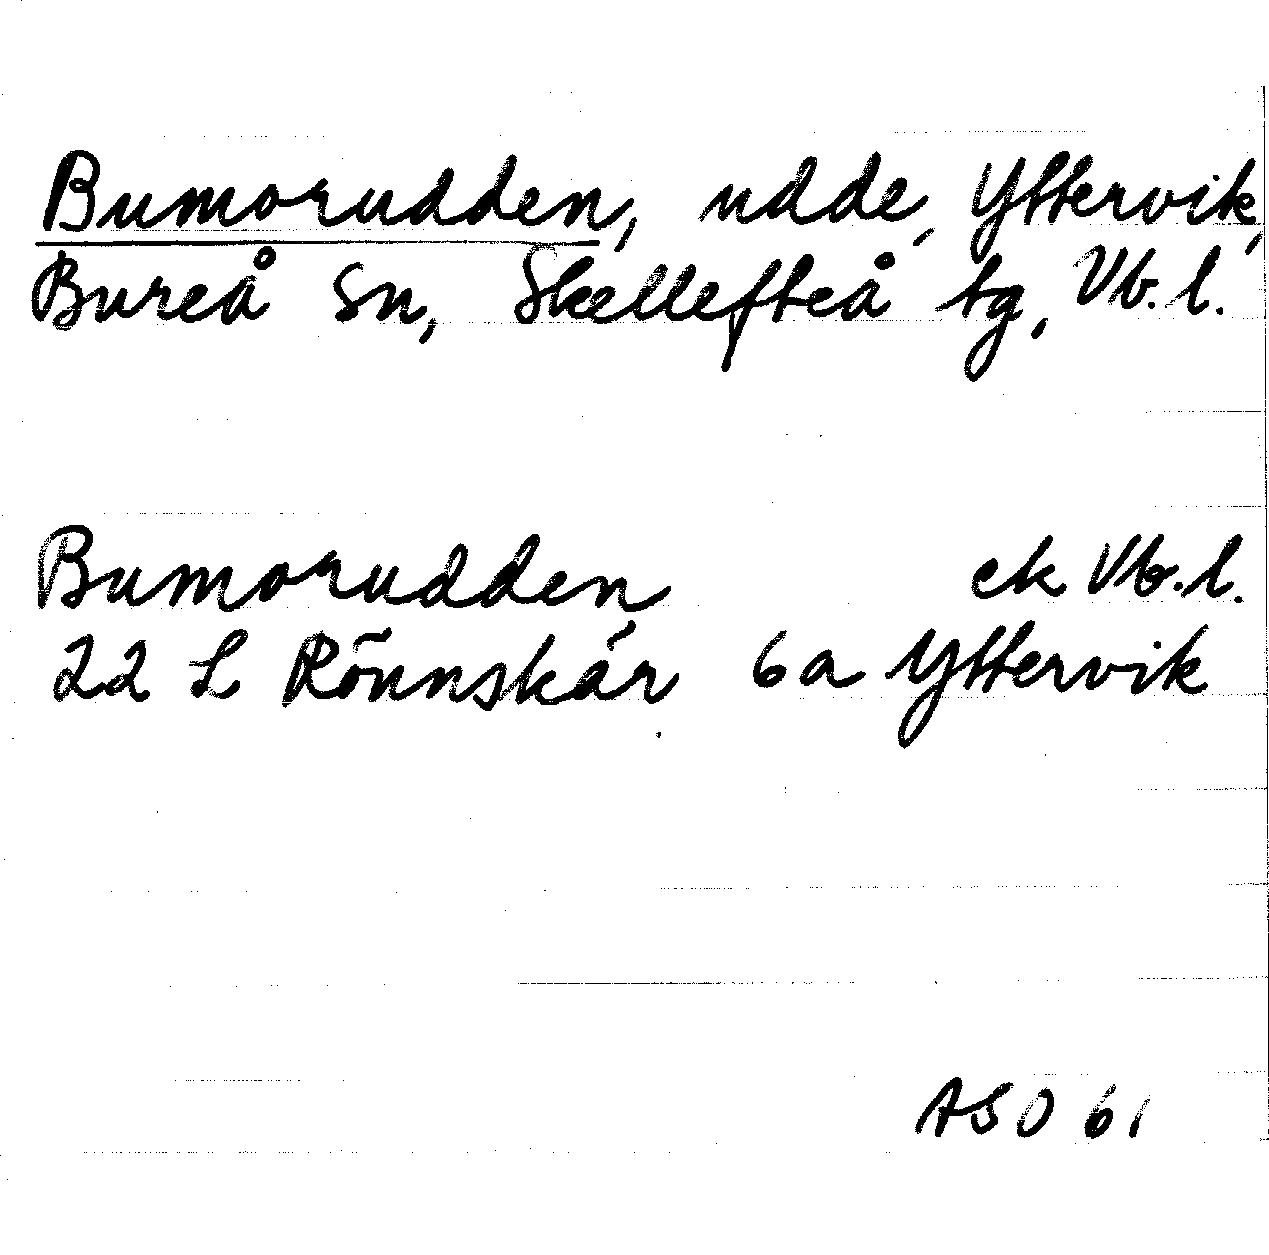 Bumorudden, udde, Yttervik,
Bureå sn, Skellefteå tg, Vb. l.
Bumorudden ek Vb. l.
22 L Rönnskär 6a Yttervik
ASO 61